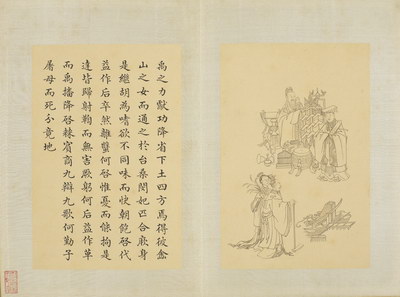 禹之力獻功降省下土四方焉得彼嵞
山之女而通之於台桑閔妃匹合厥身
是繼胡為嗜欲不同味而快朝飽啓代
益作后卒然離蠥何啓惟憂而能拘是
達皆歸射鞠而無害厥躬何后益作革
而禹播降啓棘賓商九辯九歌何勤子
屠母而死分竟地